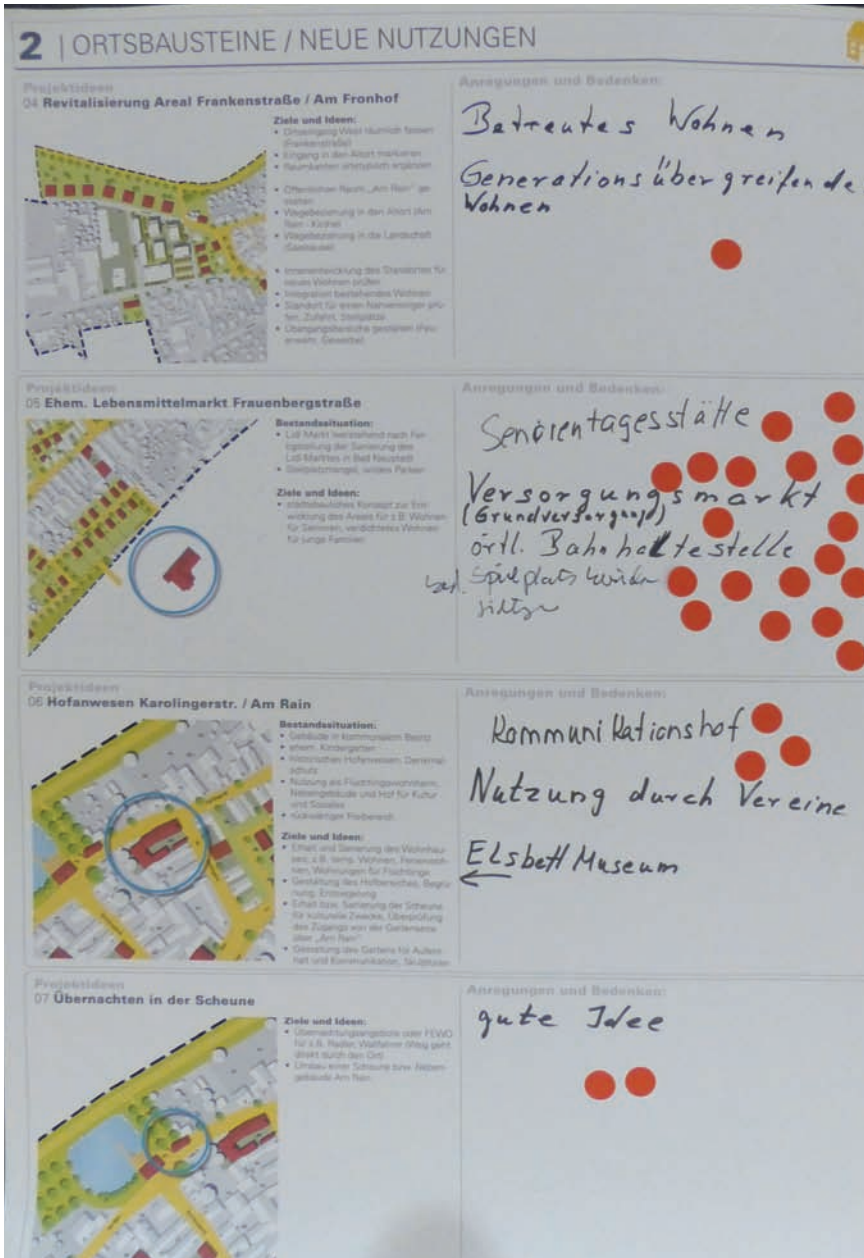 2 | ORTSBAUSTEINE / NEUE NUTZUNGEN
Projektideen
04 Revitalisierung Areal Frankenstraße / Am Fronhof
Ziele und Ideen:
• Ortseingang West räumlich fassen
(Frankenstraße)
• Eingang in den Altort markieren
• Raumkanten ortstypisch ergänzen
• Öffentlichen Raum „Am Rain“ ge-
stalten
• Wegebeziehung in den Altort (Am
Rain - Kirche)
• Wegebeziehung in die Landschaft
• Innenentwicklung des Standortes für
neues Wohnen prüfen
• Integration bestehendes Wohnen
• Standort für einen Nahversorger prü-
fen, Zufahrt, Stellplätze
• Übergangsbereiche gestalten (Feu-
erwehr, Gewerbe)
Anregungen und Bedenken:
Betreutes Wohnen
Generationsübergreifende
Wohnen
Projektideen
05 Ehem. Lebensmittelmarkt Frauenbergstraße
Bestandssituation:
• Lidl Markt leerstehend nach Fer-
tigstellung der Sanierung des
Lidl Marktes in Bad Neustadt
• Stellplatzmangel, wildes Parken
Ziele und Ideen:
• städtebauliches Konzept zur Ent-
wicklung des Areals für z.B. Wohnen
für Senioren, verdichtetes Wohnen
für junge Familien
Anregungen und Bedenken:
Seniorentagesstätte
Versorgungsmarkt
(Grundversorgung)
örtl. Bahnhaltestelle
Spielplatz
Projektideen
06 Hofanwesen Karolingerstr. / Am Rain
Bestandssituation:
• Gebäude in kommunalem Besitz
• ehem. Kindergarten
• historisches Hofanwesen, Denkmal-
schutz
• Nutzung als Flüchtlingswohnheim,
Nebengebäude und Hof für Kultur
und Soziales
• rückwärtiger Freibereich
Ziele und Ideen:
• Erhalt und Sanierung des Wohnhau-
ses, z.B. temp. Wohnen, Ferienwoh-
nen, Wohnungen für Flüchtlinge
• Gestaltung des Hofbereiches, Begrü-
nung, Entsiegelung
• Erhalt bzw. Sanierung der Scheune
für kulturelle Zwecke, Überprüfung
des Zugangs von der Gartenseite
über „Am Rain“
• Gestaltung des Gartens für Aufent-
halt und Kommunikation, Skulpturen
Anregungen und Bedenken:
Kommunikationshof
Nutzung durch Vereine
Elsbett Museum
Projektideen
07 Übernachten in der Scheune
Ziele und Ideen:
• Übernachtungsangebote oder FEWO
für z.B. Radler, Wallfahrer (Weg geht
direkt durch den Ort)
• Umbau einer Scheune bzw. Neben-
gebäude Am Rain
Anregungen und Bedenken:
gute Idee